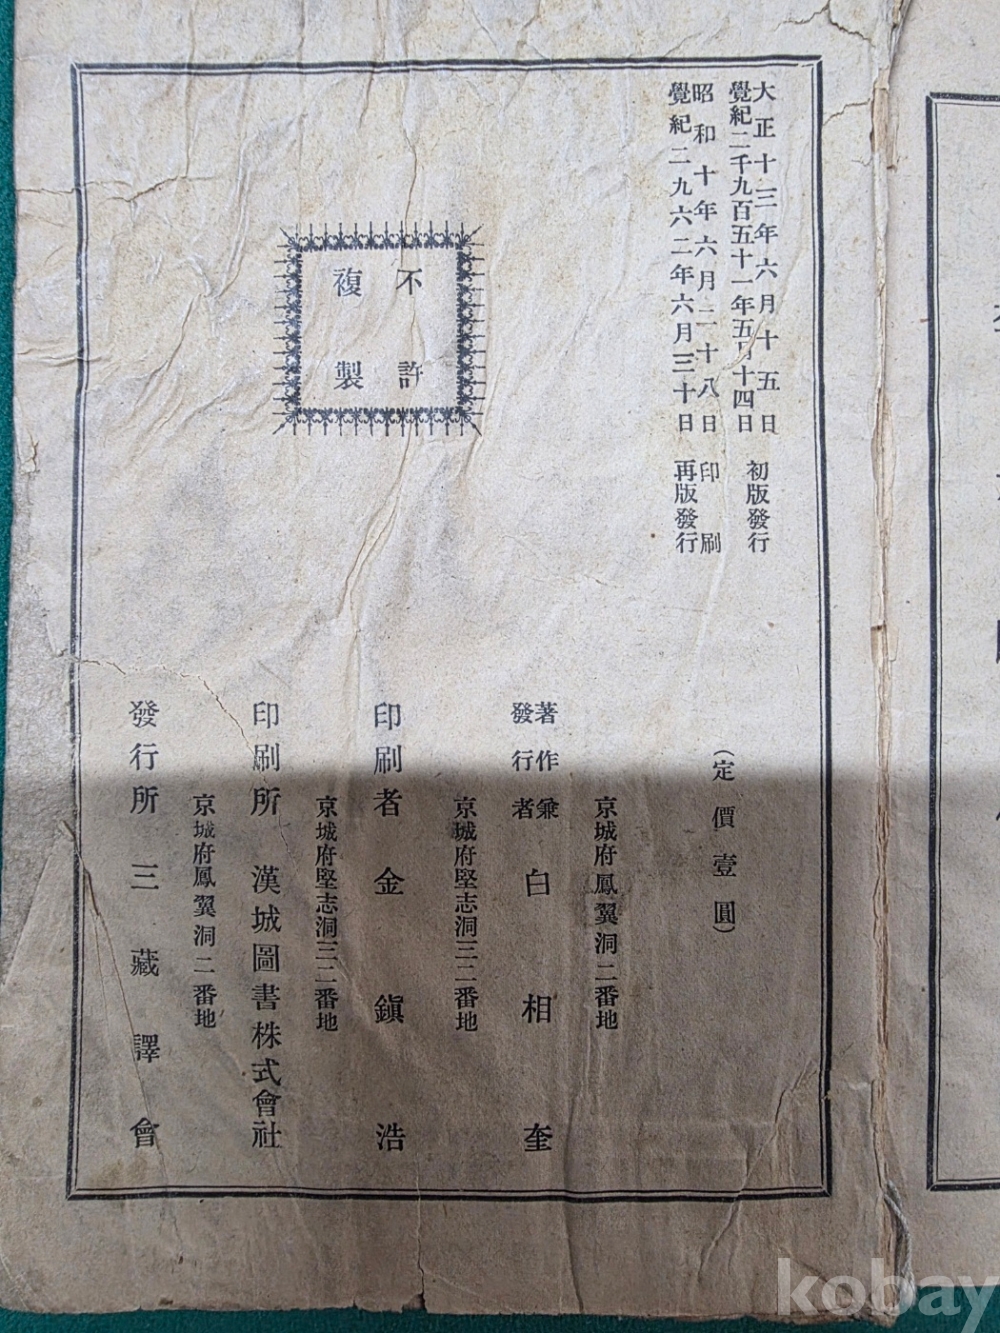 大正十三年六月十五日
覺紀二千九百五十一年五月十四日
初版發行
昭和十年六月二十八日 印刷
覺紀二九六二年六月三十日 再版發行
不許
複製
(定價壹圓)
京城府鳳翼洞二番地
著作兼
發行者
白相奎
京城府堅志洞三二番地
印刷者 金鎭浩
京城府堅志洞三二番地
印刷所 漢城圖書株式會社
京城府鳳翼洞二番地
發行所 三藏譯會
kobay